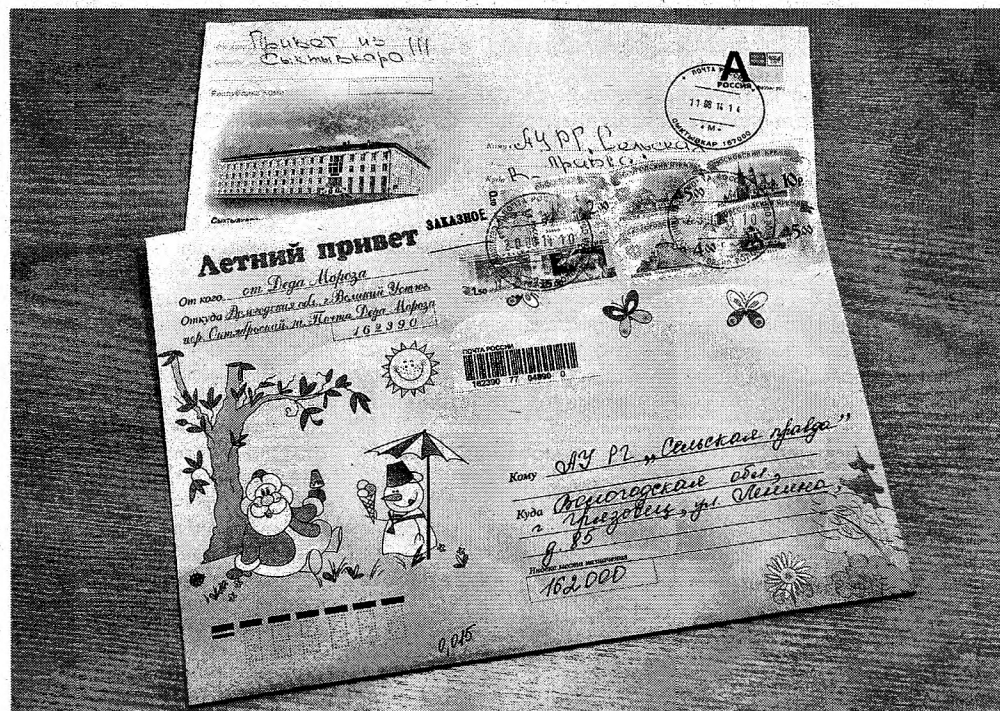 Привет из !!!
Сыктывкара
Республика Коми
А
ПОЧТА
РОССИЯ
11 08 14 14
«М»
СЫКТЫВКАР 167000
Кому АУ РГ, Сельская
Куда правда.
Летний привет
ЗАКАЗНОЕ
От кого от Деда Мороза
Откуда Вологодская обл., г. Великий Устюг,
пер. Октябрьский, п. Почта Деда Мороза
162390
ПОЧТА РОССИИ
162390 77 04890 0
Кому АУ РГ „Сельская правда”
Куда Вологодская обл.,
г. Грязовец, ул. Ленина,
д. 85
Индекс места назначения
162000
0,015